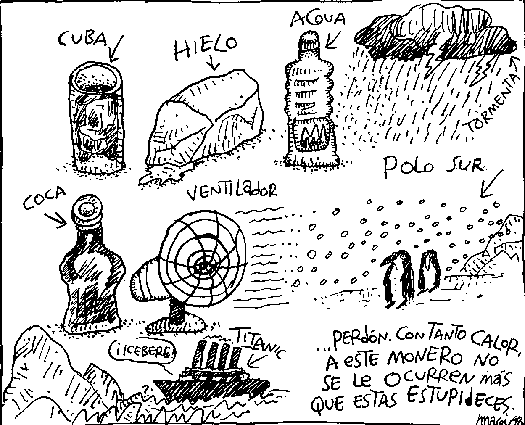 CUBA
HIELO
ACQUA
TORMENTA
COCA
VENTILADOR
POLO SUR
¡ICEBERG!
TITANIC
...PERDÓN. CON TANTO CALOR,
A ESTE MONERO NO
SE LE OCURREN MÁS
QUE ESTAS ESTUPIDECES.